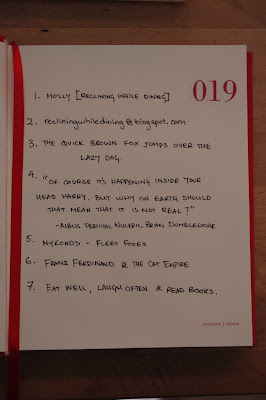 019
1. MOLLY [RECLINING WHILE DINING]
2. recliningwhiledining@blogspot.com
3. THE QUICK BROWN FOX JUMPS OVER THE
LAZY DOG.
4. "OF COURSE IT'S HAPPENING INSIDE YOUR
HEAD HARRY, BUT WHY ON EARTH SHOULD
THAT MEAN THAT IT IS NOT REAL?"
-ALBUS PERCIVAL WULFRIC BRIAN DUMBLEDORE
5. MYKONOS - FLEET FOXES
6. FRANZ FERDINAND & THE CAT EMPIRE
7. EAT WELL, LAUGH OFTEN & READ BOOKS.